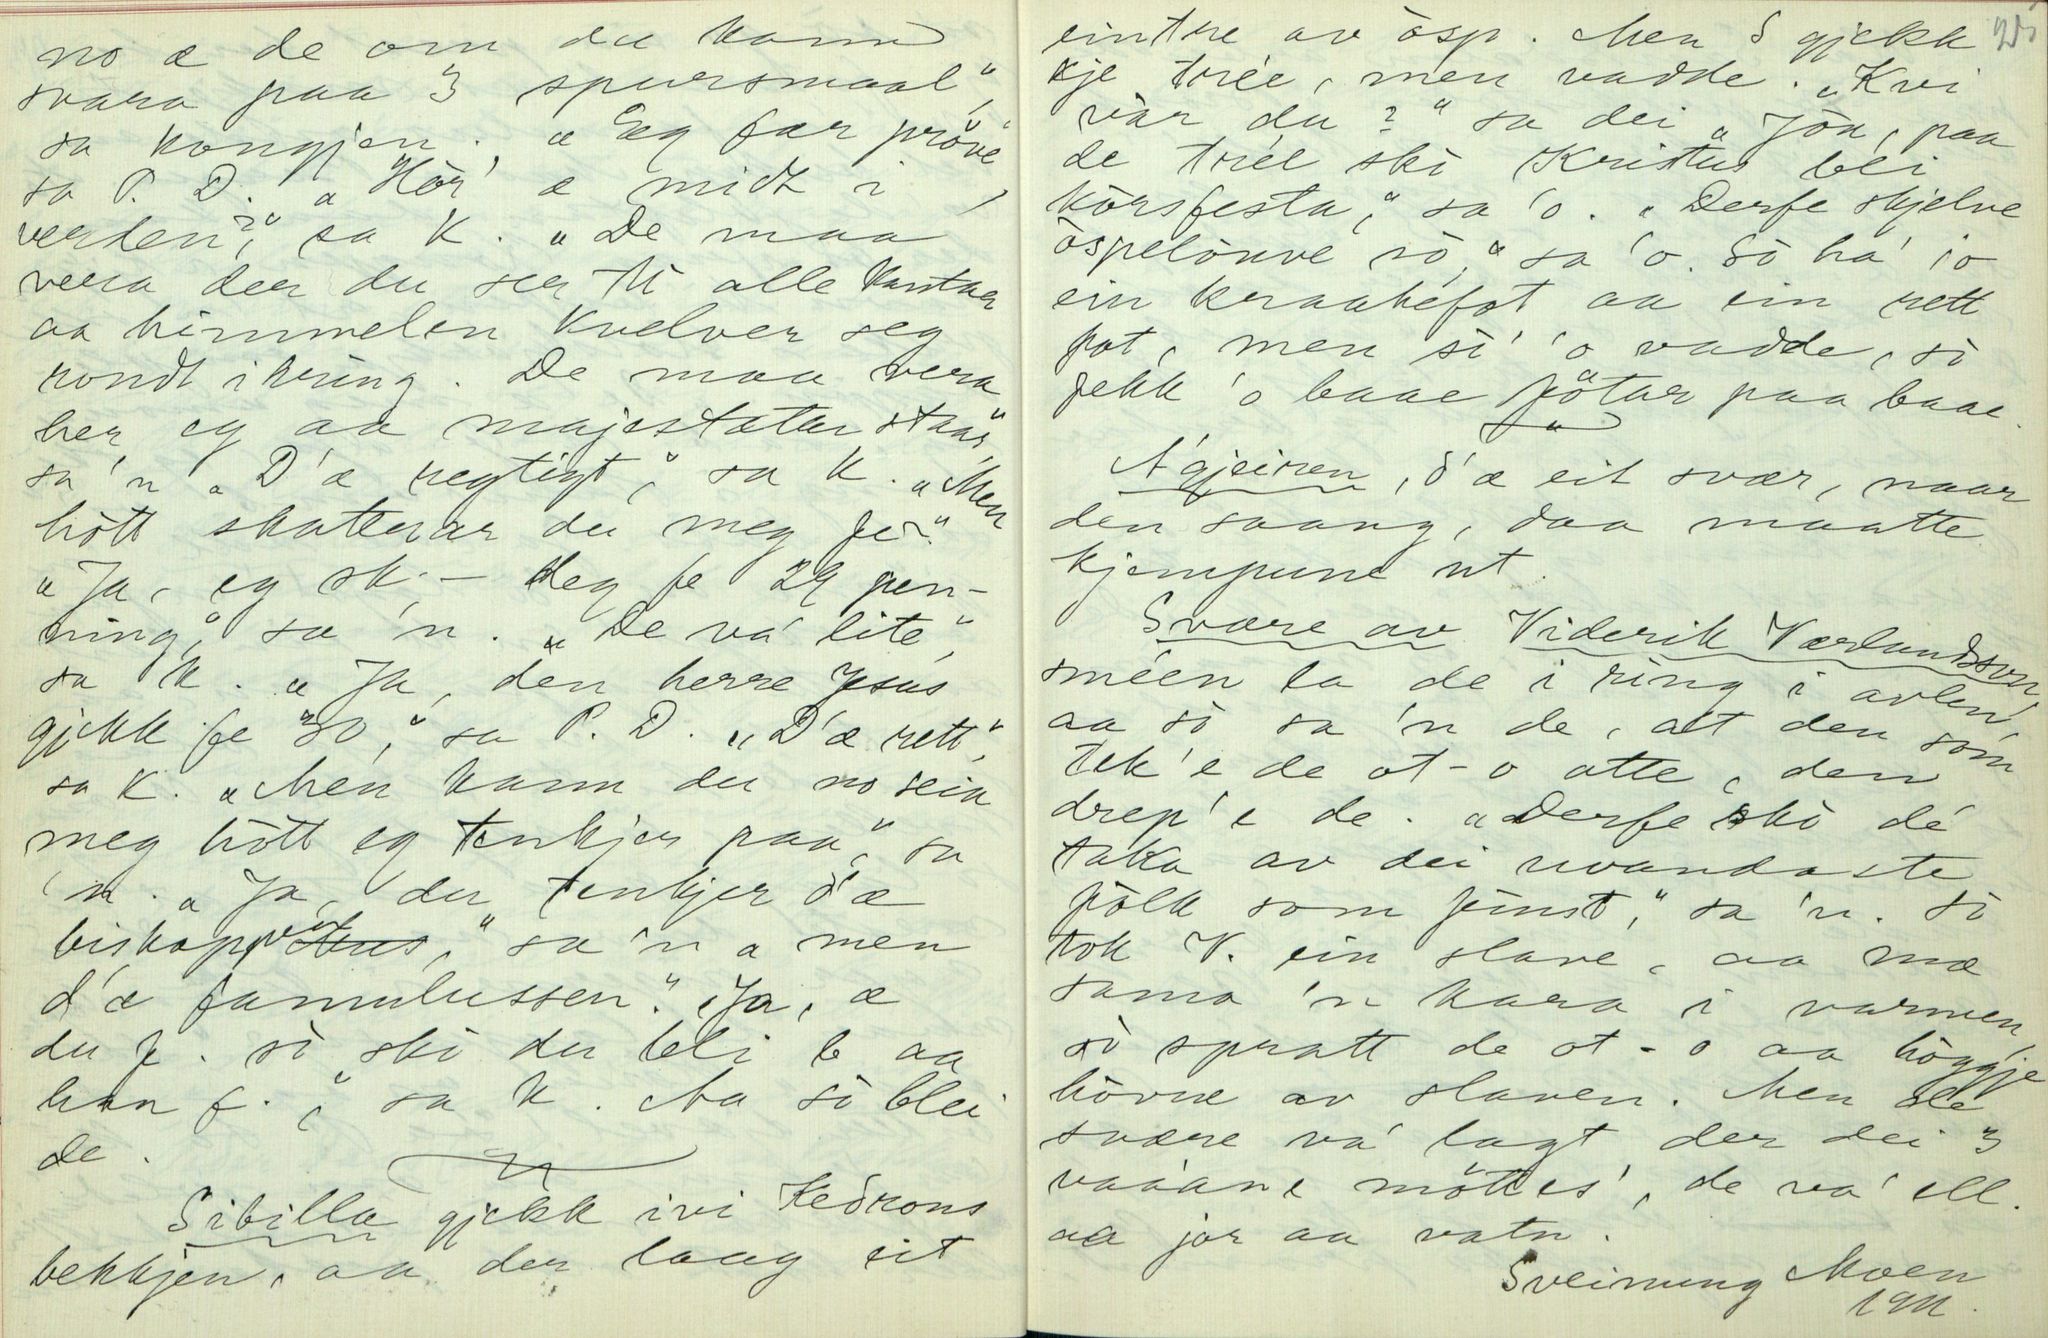 no æ de om du kann
svara paa 3 spursmaal,"
sa kongjen. "Eg fær pröve,"
sa P. D. "Hòr' æ midt i
verden?," sa K. "De maa
vera der du ser ti alle kantar
aa himmelen kvelver seg
rondt ikring. De maa vera
her eg aa majestæten staar,"
sa 'n "D'æ regtigt," sa K. "Men
hòtt skatterar du meg fer."
"Ja, eg sk. — deg fe 29 pen-
ning," sa 'n. "De va' lite,"
sa K. "Ja, den herre Jesus
gjekk fe 30," sa P. D. "D'æ rett,"
sa K. "Men kann du no seia
meg hòtt eg tenkjer paa," sa
'n. "Ja, du tenkjer d'æ
biskoppen," sa 'n "men
d'æ famulussen." "Ja, æ
du f. sò skò du bli b aa
han f.," sa K. Aa sò blei
de.
Sibilla gjekk ivi Kedrons
bekkjen, aa der laag eit
eintre av òsp. Men S gjekk
kje trée, men vadde. "Kvi
vàr du?" sa dei "Jòa, paa
de tréé skò Kristus bli
kòrsfesta," sa 'o. "Derfe skjelve
òspelòuve sò," sa 'o. Sò ha' 'o
ein kraakefot aa ein rett
fot, men si' 'o vadde, sò
fekk 'o baae fötar paa baae.
Ágjeiren, d'æ eit svær, naar
den saang, daa maatte
kjempune ut.
Svære av Viderik Værlundsson,
sméen la de i ring i avlen,
aa sò sa 'n de, at den som
tek'e de ot-o atte, den
drep'e de. "Derfe skò dé
taka av dei uvandaste
fòlk som finst," sa 'n. Sò
tok V. ein slave, aa mæ
sama 'n kara i varmen,
sò spratt de ot-o aa höggje
hòvue av slaven. Men de
svære va' lagt der dei 3
vaáane möttes', de va' ell.
aa jor aa vatn.
Sveinung Moen
1911.